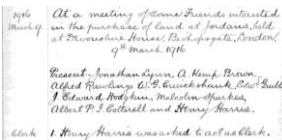 1916 At a meeting of some Friends interested
March 9 in the purchase of land at Jordans, held
at Devonshire House, Bishopsgate, London,
9th March 1916
Present: Jonathan Lynn, A. Kemp Brown
Alfred Rawlings W. G. Cruickshank,
J. Edward Hodgkin, Malcolm Sparkes,
Albert P. I. Cotterell and Henry Harris.
Clerk 1. Henry Harris was asked to act as Clerk.